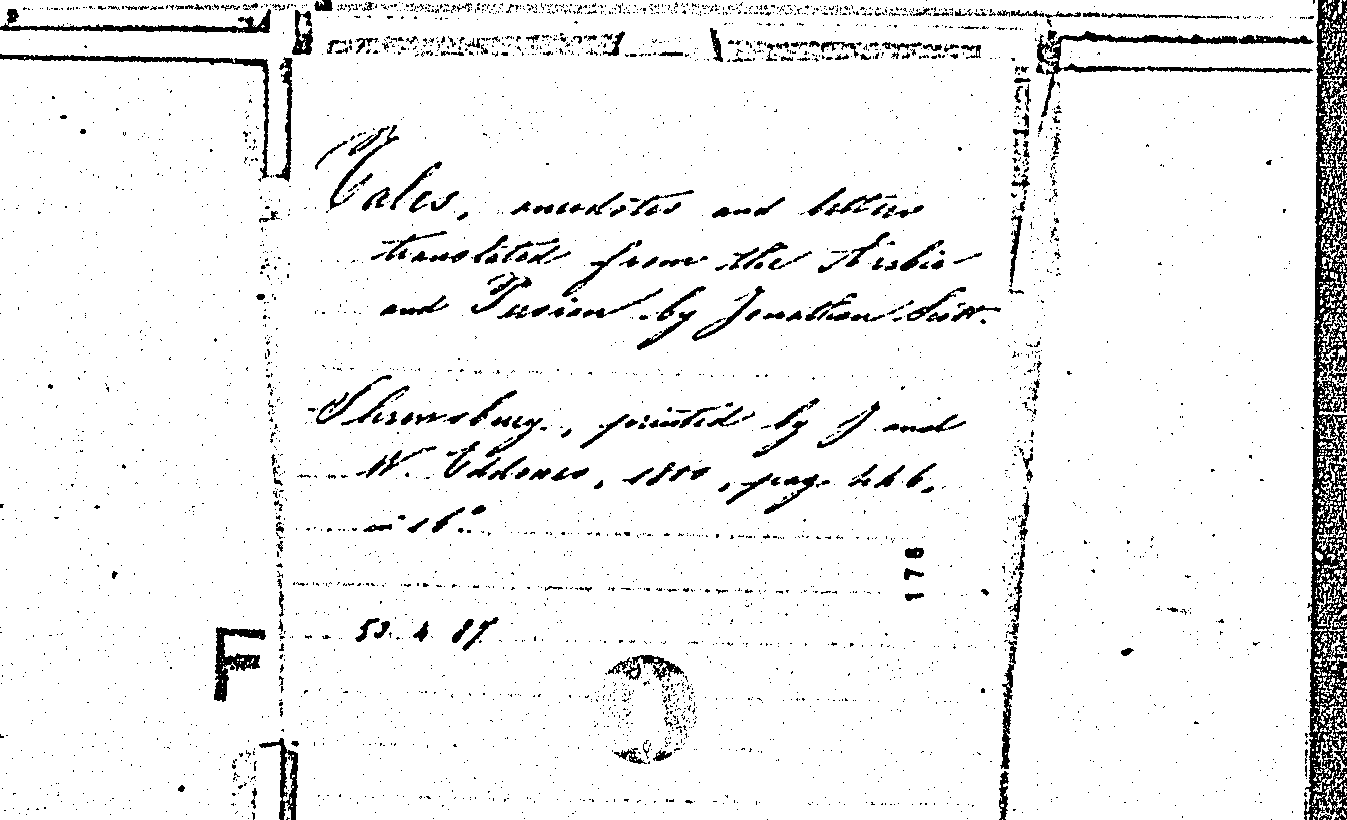 Tales, anecdotes and letters
translated from the Arabic
and Persian by Jonathan Scott.
Shrewsbury, printed by J and
W. Eddowes, 1800, pag. 446,
in 16°
178
53 4 87
F